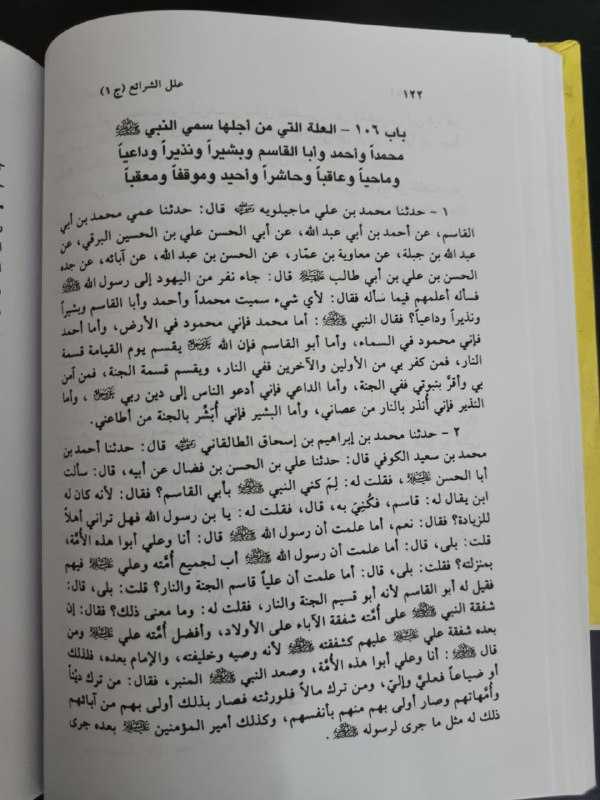 ١٢٢ علل الشرائع (ج ١)
باب ١٠٦ - العلة التي من أجلها سمي النبي ﷺ
محمداً وأحمد وأبا القاسم وبشيراً ونذيراً وداعياً
وماحياً وعاقباً وحاشراً وأحيد وموقفاً ومعقباً
١ - حدثنا محمد بن علي ماجيلويه قال: حدثنا عمي محمد بن أبي
القاسم، عن أحمد بن أبي عبد الله، عن أبي الحسن علي بن الحسين البرقي، عن
عبد الله بن جبلة، عن معاوية بن عمّار، عن الحسن بن عبد الله، عن آبائه، عن جده
الحسن بن علي بن أبي طالب قال: جاء نفر من اليهود إلى رسول الله ﷺ
فسأله أعلمهم فيما سأله فقال: لأي شيء سميت محمداً وأحمد وأبا القاسم وبشيراً
ونذيراً وداعياً؟ فقال النبي ﷺ: أما محمد فإني محمود في الأرض، وأما أحمد
فإني محمود في السماء، وأما أبو القاسم فإن الله يقسم يوم القيامة قسمة
النار، فمن كفر بي من الأولين والآخرين ففي النار، ويقسم قسمة الجنة، فمن آمن
بي وأقرّ بنبوتي ففي الجنة، وأما الداعي فإني أدعو الناس إلى دين ربي، وأما
النذير فإني أُنذر بالنار من عصاني، وأما البشير فإني أُبَشّر بالجنة من أطاعني.
٢ - حدثنا محمد بن إبراهيم بن إسحاق الطالقاني قال: حدثنا أحمد بن
محمد بن سعيد الكوفي قال: حدثنا علي بن الحسن بن فضال عن أبيه، قال: سألت
أبا الحسن، فقلت له: لِمَ كني النبي ﷺ بأبي القاسم؟ فقال: لأنه كان له
ابن يقال له: قاسم، فكُنِيَ به، قال، فقلت له: يا بن رسول الله فهل تراني أهلاً
للزيادة؟ فقال: نعم، أما علمت أن رسول الله ﷺ قال: أنا وعلي أبوا هذه الأُمَّة،
قلت: بلى، قال: أما علمت أن رسول الله ﷺ أب لجميع أُمَّته وعلي فيهم
بمنزلته؟ فقلت: بلى، قال: أما علمت أن علياً قاسم الجنة والنار؟ قلت: بلى، قال:
فقيل له أبو القاسم لأنه أبو قسيم الجنة والنار، فقلت له: وما معنى ذلك؟ فقال: إن
شفقة النبي ﷺ على أُمَّته شفقة الآباء على الأولاد، وأفضل أُمَّته علي ومن
بعده شفقة علي عليهم كشفقته ﷺ لأنه وصيه وخليفته، والإمام بعده، فلذلك
قال ﷺ: أنا وعلي أبوا هذه الأُمَّة، وصعد النبي ﷺ المنبر، فقال: من ترك دَيْناً
أو ضياعاً فعليَّ وإليَّ، ومن ترك مالاً فلورثته فصار بذلك أولى بهم من آبائهم
وأُمَّهاتهم وصار أولى بهم منهم بأنفسهم، وكذلك أمير المؤمنين بعده جرى
ذلك له مثل ما جرى لرسوله ﷺ.